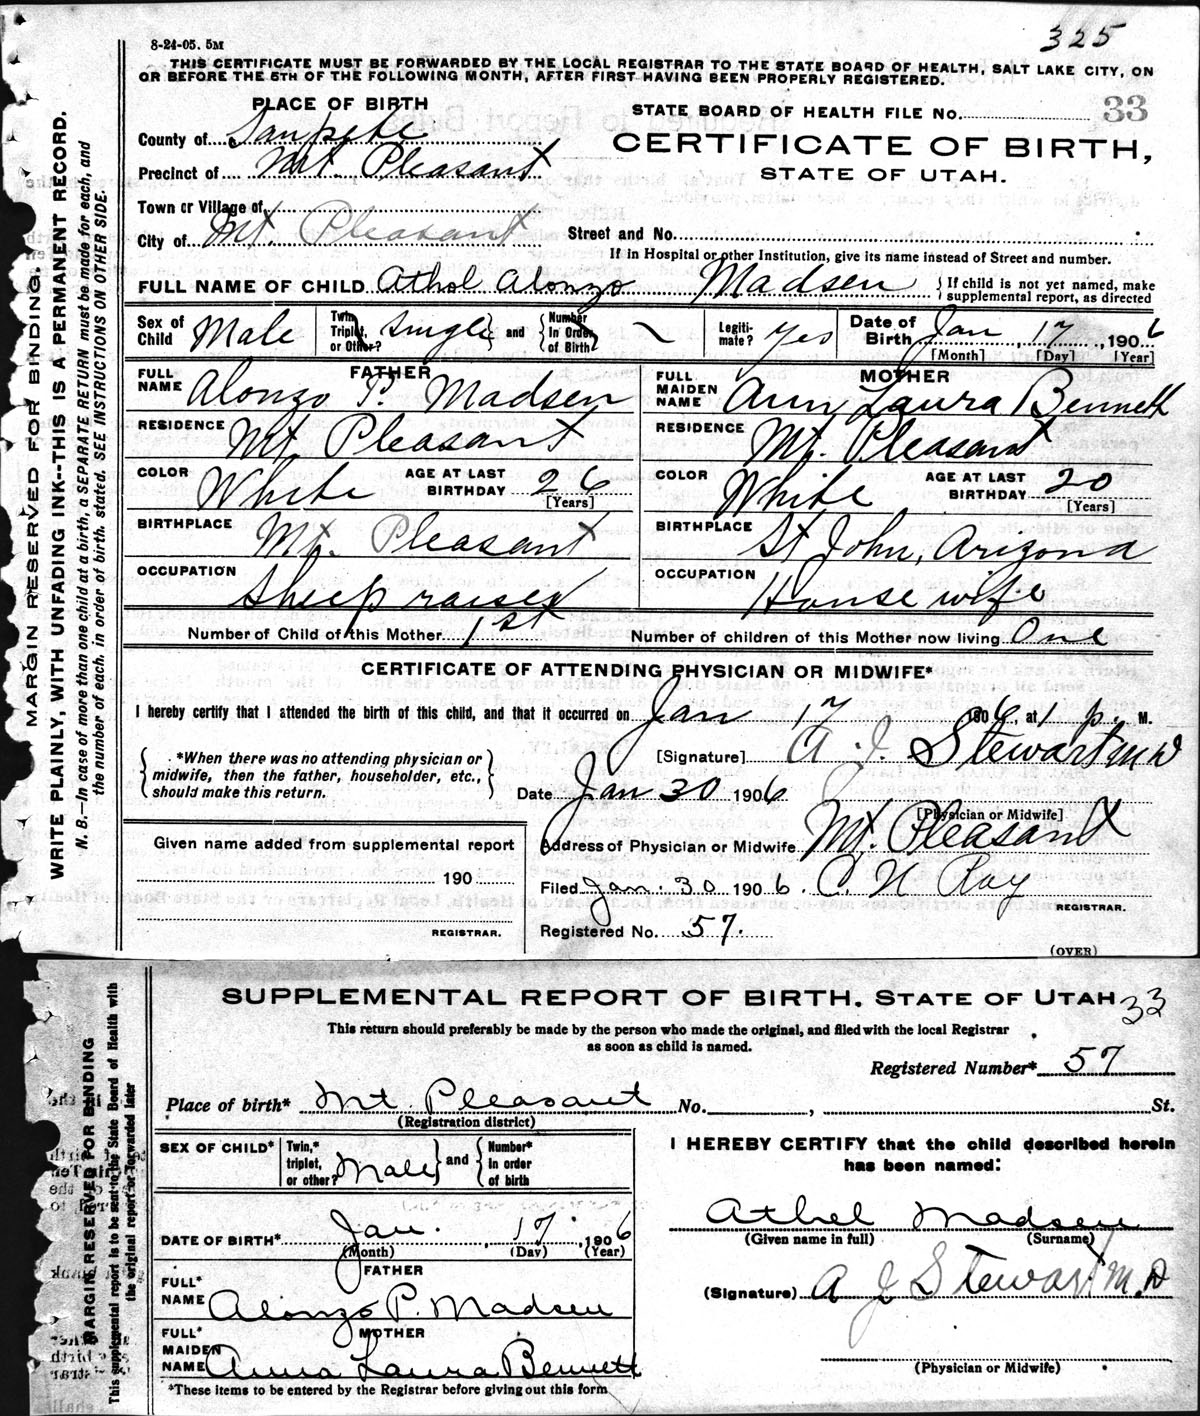 8-24-05. 5M
325
THIS CERTIFICATE MUST BE FORWARDED BY THE LOCAL REGISTRAR TO THE STATE BOARD OF HEALTH, SALT LAKE CITY, ON
OR BEFORE THE 5TH OF THE FOLLOWING MONTH, AFTER FIRST HAVING BEEN PROPERLY REGISTERED.
PLACE OF BIRTH
STATE BOARD OF HEALTH FILE No. 33
County of Sanpete
CERTIFICATE OF BIRTH,
Precinct of Mt. Pleasant
STATE OF UTAH.
Town or Village of
City of Mt. Pleasant
Street and No.
If in Hospital or other Institution, give its name instead of Street and number.
FULL NAME OF CHILD Athol Alonzo Madsen { If child is not yet named, make supplemental report, as directed
Sex of Child Male Twin, Triplet, or Other? Single } and { Number In Order of Birth Legiti-mate? Yes Date of Birth Jan 17, 1906
[Month] [Day] [Year]
FATHER
MOTHER
FULL NAME Alonzo P. Madsen
FULL MAIDEN NAME Ann Laura Bennett
RESIDENCE Mt. Pleasant
RESIDENCE Mt. Pleasant
COLOR White AGE AT LAST BIRTHDAY 26 [Years]
COLOR White AGE AT LAST BIRTHDAY 20 [Years]
BIRTHPLACE Mt. Pleasant
BIRTHPLACE St John, Arizona
OCCUPATION Sheep raiser
OCCUPATION House wife
Number of Child of this Mother 1st
Number of children of this Mother now living One
CERTIFICATE OF ATTENDING PHYSICIAN OR MIDWIFE*
I hereby certify that I attended the birth of this child, and that it occurred on Jan 17 1906, at 1 p. M.
*When there was no attending physician or
midwife, then the father, householder, etc.,
should make this return.
[Signature] A. J. Stewart M D
Date Jan 30 1906
[Physician or Midwife]
Address of Physician or Midwife Mt. Pleasant
Given name added from supplemental report
190
REGISTRAR.
Filed Jan. 30 1906. C. N Ray
REGISTRAR.
Registered No. 57.
(OVER)
MARGIN RESERVED FOR BINDING.
WRITE PLAINLY, WITH UNFADING INK--THIS IS A PERMANENT RECORD.
N. B.—In case of more than one child at a birth, a SEPARATE RETURN must be made for each, and
the number of each, in order of birth, stated. SEE INSTRUCTIONS ON OTHER SIDE.
SUPPLEMENTAL REPORT OF BIRTH. STATE OF UTAH 33
This return should preferably be made by the person who made the original, and filed with the local Registrar
as soon as child is named.
Registered Number* 57
Place of birth* Mt Pleasant No. , St.
(Registration district)
SEX OF CHILD* Twin,* triplet, or other? Male } and { Number* In order of birth
I HEREBY CERTIFY that the child described herein
has been named:
DATE OF BIRTH* Jan. 17. 1906
(Month) (Day) (Year)
Athel Madsen
(Given name in full) (Surname)
FATHER
FULL* NAME Alonzo P. Madsen
(Signature) A J Stewart M.D
MOTHER
FULL* MAIDEN NAME Anna Laura Bennett
(Physician or Midwife)
*These items to be entered by the Registrar before giving out this form
MARGIN RESERVED FOR BINDING
This supplemental report is to be sent to the State Board of Health with
the original report or forwarded later